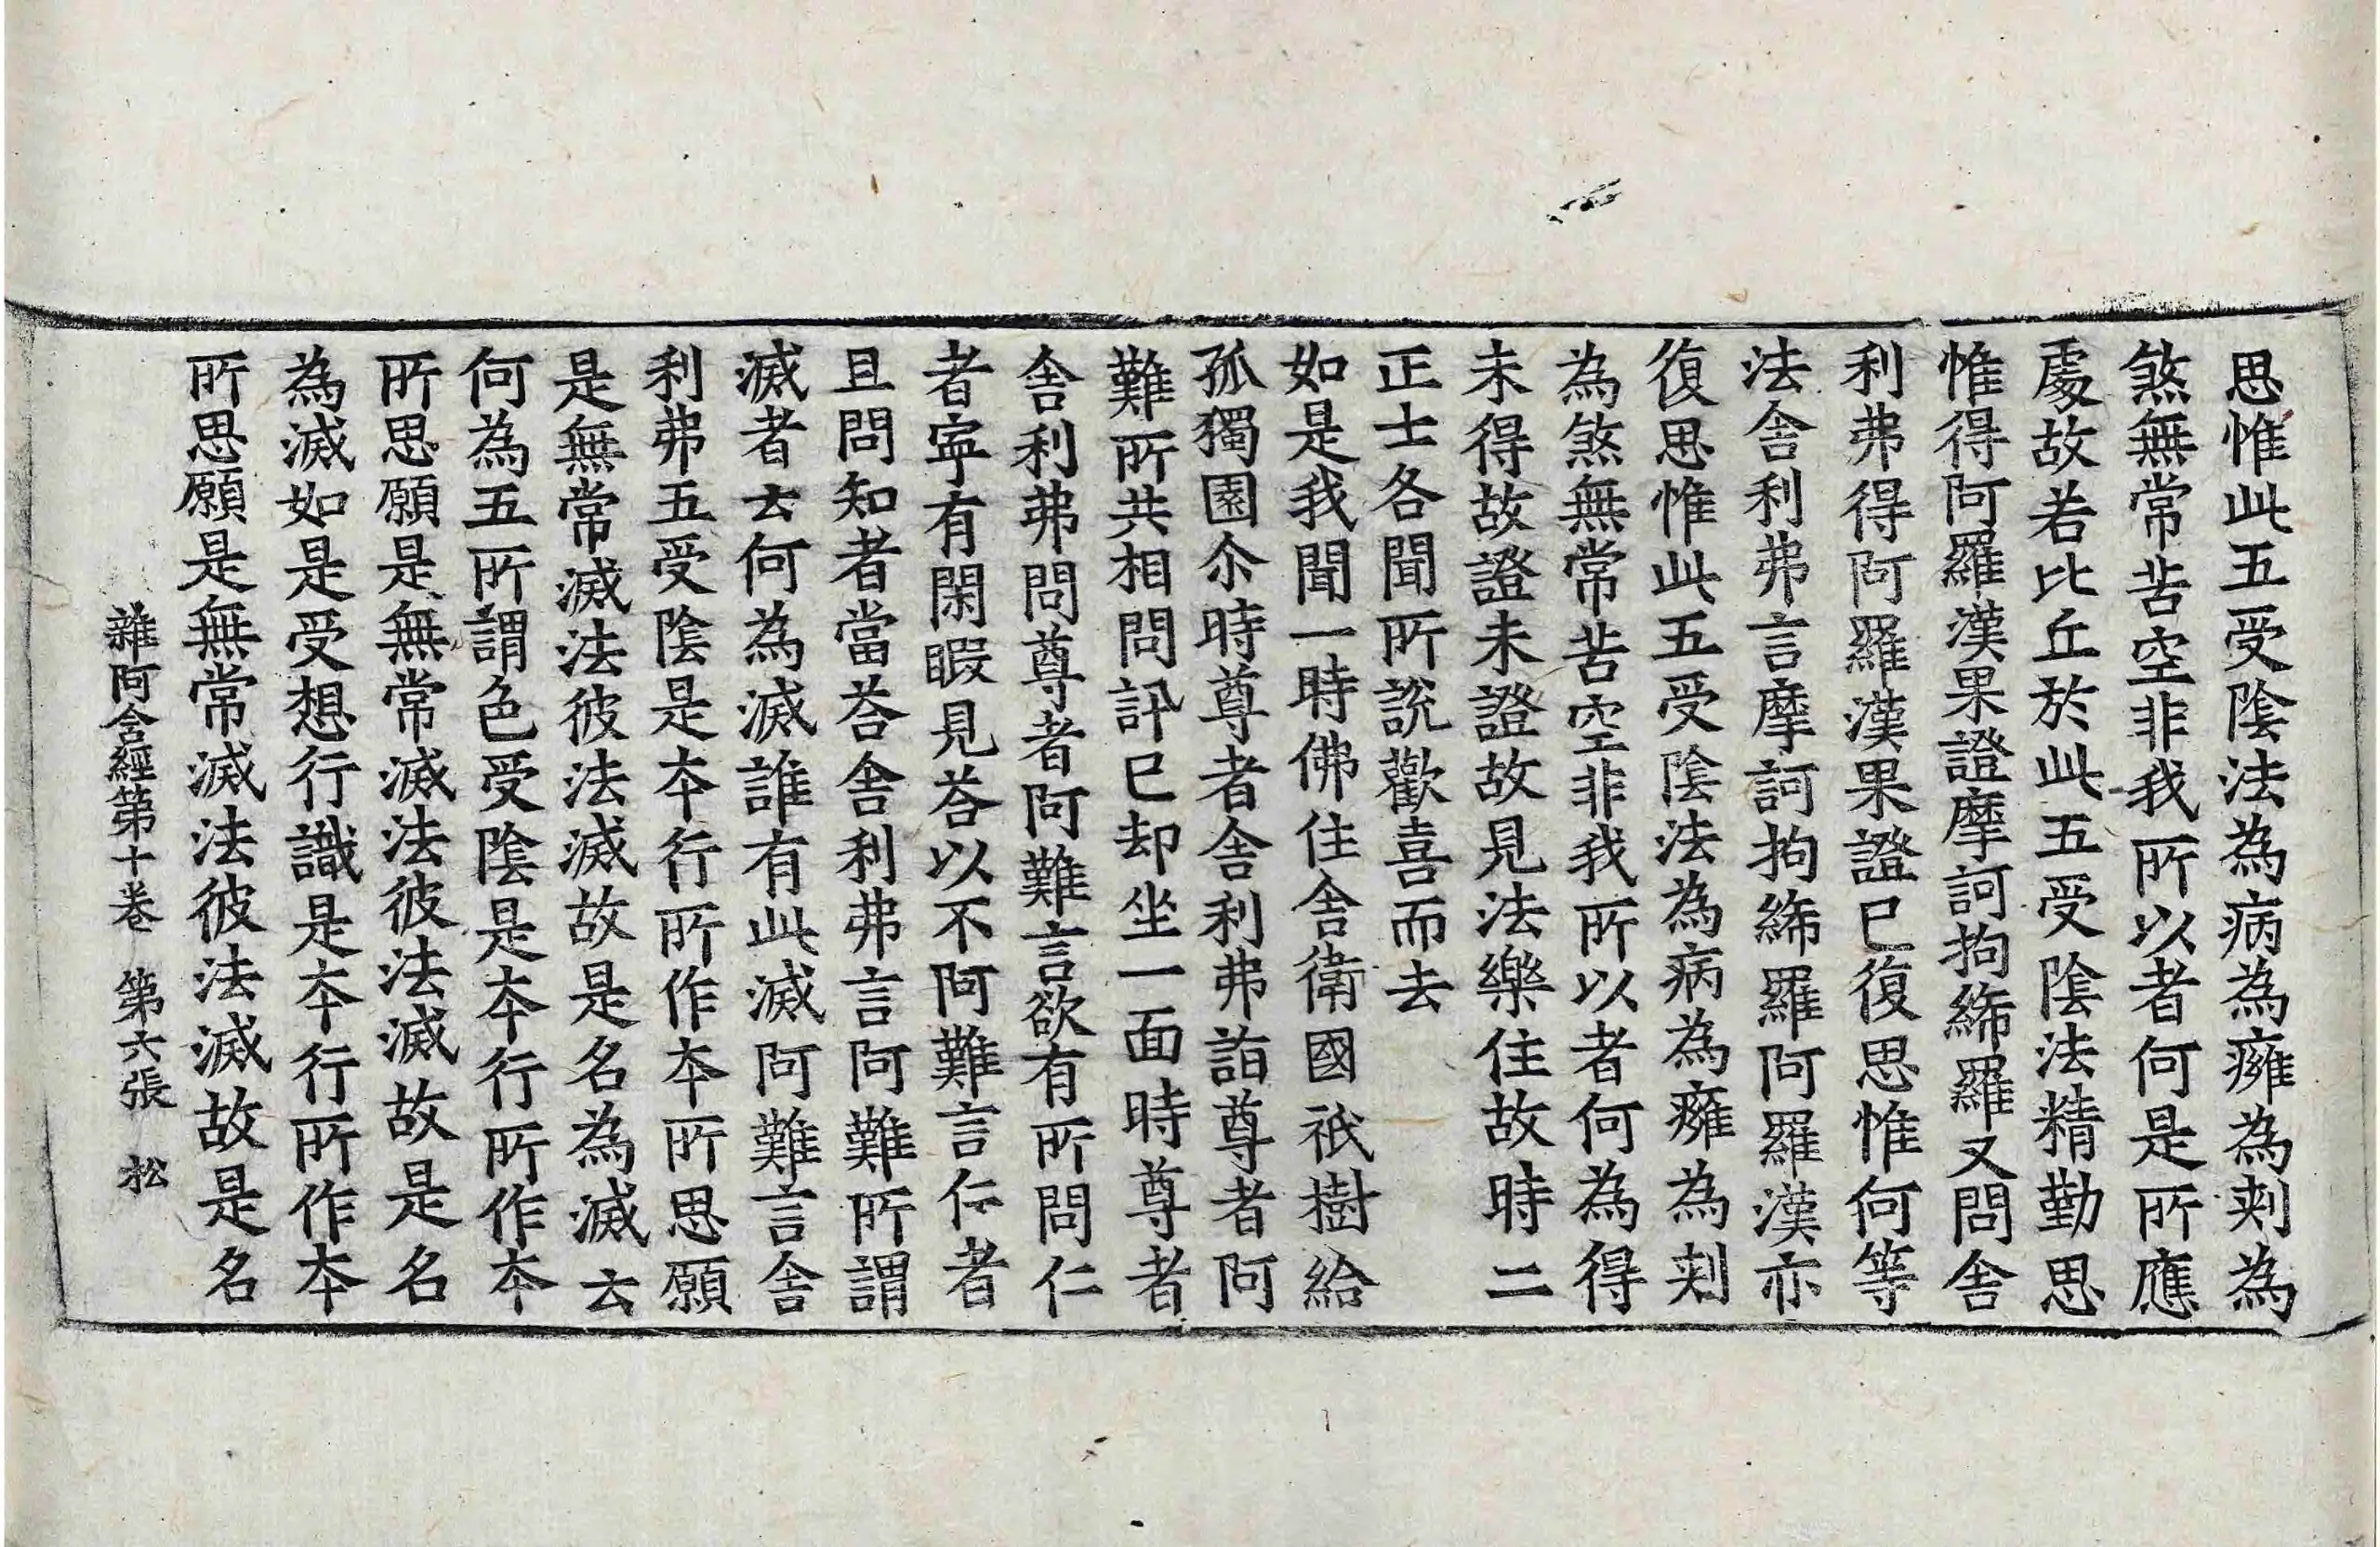 思惟此五受陰法為病為癰為刾為
煞無常苦空非我所以者何是所應
處故若比丘於此五受陰法精勤思
惟得阿羅漢果證摩訶拘絺羅又問舍
利弗得阿羅漢果證已復思惟何等
法舍利弗言摩訶拘絺羅阿羅漢亦
復思惟此五受陰法為病為癰為刾
為煞無常苦空非我所以者何為得
未得故證未證故見法樂住故時二
正士各聞所說歡喜而去
如是我聞一時佛住舍衛國祇樹給
孤獨園尒時尊者舍利弗詣尊者阿
難所共相問訊已却坐一面時尊者
舍利弗問尊者阿難言欲有所問仁
者寧有閑暇見荅以不阿難言仁者
且問知者當荅舍利弗言阿難所謂
滅者云何為滅誰有此滅阿難言舍
利弗五受陰是本行所作本所思願
是無常滅法彼法滅故是名為滅云
何為五所謂色受陰是本行所作本
所思願是無常滅法彼法滅故是名
為滅如是受想行識是本行所作本
所思願是無常滅法彼法滅故是名
雜阿含經第十卷 第六張 松